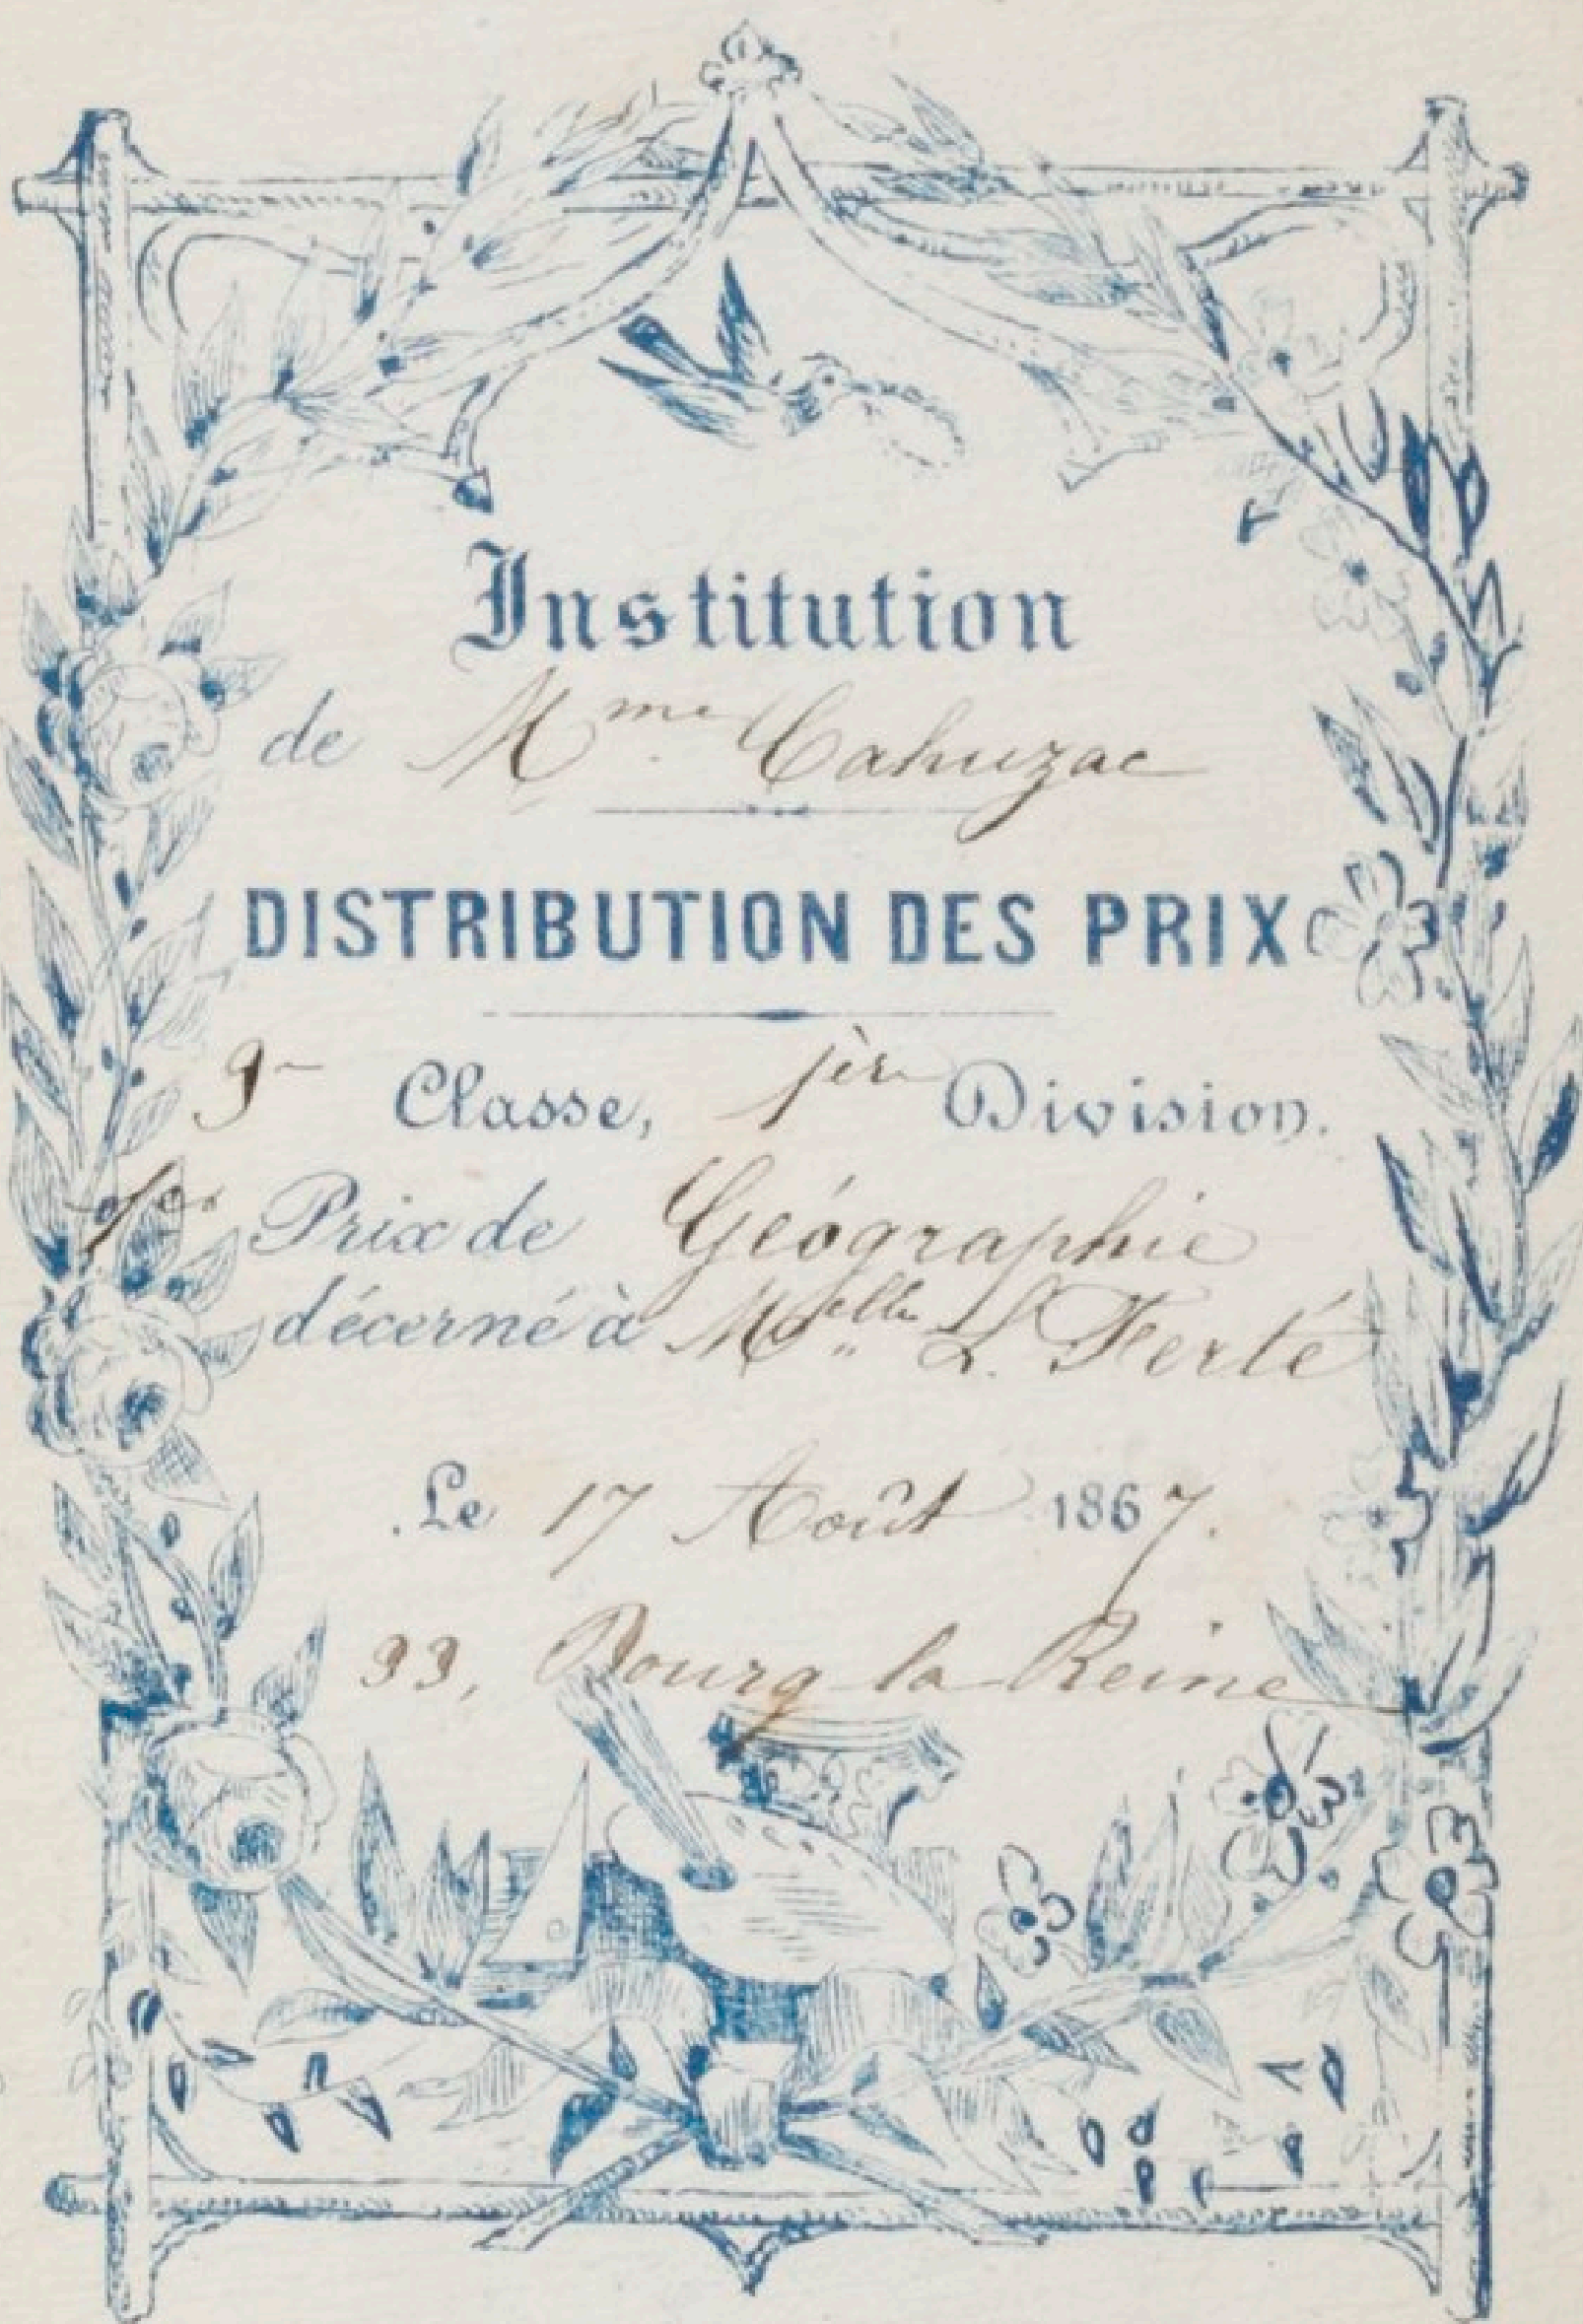 Institution
de Mme Cahuzac
DISTRIBUTION DES PRIX
Classe, 1ère Division.
1er Prix de Géographie
décerné à Melle L. Ferté
Le 17 Août 1867.
33, Bourg la Reine